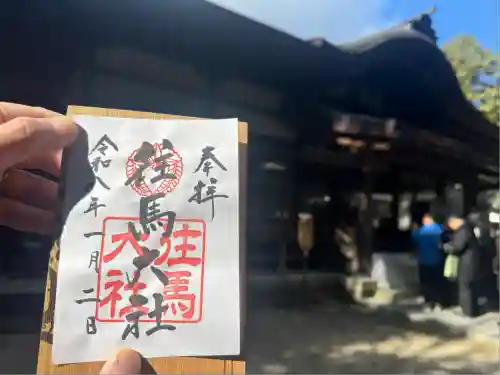 奉拝
往馬大社
往馬
大社
令和八年一月二日